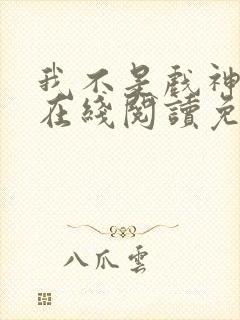 我不是戲神
在綫閱讀免
八爪雲